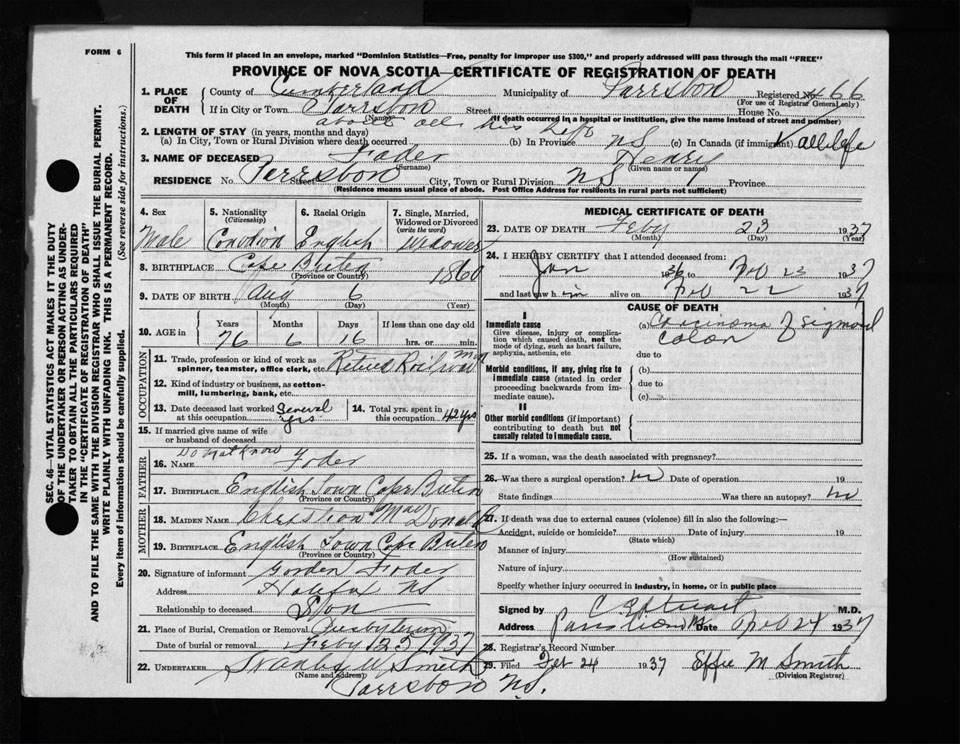 FORM 6
This form if placed in an envelope, marked "Dominion Statistics—Free, penalty for improper use $300," and properly addressed will pass through the mail "FREE"
PROVINCE OF NOVA SCOTIA—CERTIFICATE OF REGISTRATION OF DEATH
1. PLACE OF DEATH County of Cumberland Municipality of Parrsboro Registered No. 466
(For use of Registrar General only)
If in City or Town Parrsboro Street House No.
(Name) (If death occurred in a hospital or institution, give the name instead of street and number)
2. LENGTH OF STAY (in years, months and days) about all his life
(a) In City, Town or Rural Division where death occurred (b) In Province NS (c) In Canada (if immigrant) all life
3. NAME OF DECEASED Fader Henry
(Surname) (Given name or names)
RESIDENCE No. Street Parrsboro City, Town or Rural Division NS Province
(Residence means usual place of abode. Post Office Address for residents in rural parts not sufficient)
4. Sex Male
5. Nationality (Citizenship) Canadian
6. Racial Origin English
7. Single, Married, Widowed or Divorced (write the word) Widower
8. BIRTHPLACE Cape Breton
(Province or Country)
9. DATE OF BIRTH Aug 6 1860
(Month) (Day) (Year)
10. AGE in Years Months Days If less than one day old
76 6 16 hrs. or min.
OCCUPATION
11. Trade, profession or kind of work as spinner, teamster, office clerk, etc. Retired Railroad man
12. Kind of industry or business, as cotton-mill, lumbering, bank, etc.
13. Date deceased last worked at this occupation Several yrs
14. Total yrs. spent in this occupation 42 yrs
15. If married give name of wife or husband of deceased
FATHER
16. NAME Do not know Fader
17. BIRTHPLACE English Town Cape Breton
(Province or Country)
MOTHER
18. MAIDEN NAME Christian MacDonald
19. BIRTHPLACE English Town Cape Breton
(Province or Country)
20. Signature of informant Gordon Fader
Address Halifax NS
Relationship to deceased Son
21. Place of Burial, Cremation or Removal Presbyterian
Date of burial or removal Feby 25 1937
22. UNDERTAKER W Smith
(Name and address) Parrsboro N.S.
MEDICAL CERTIFICATE OF DEATH
23. DATE OF DEATH Feby 23 1937
(Month) (Day) (Year)
24. I HEREBY CERTIFY that I attended deceased from:
Jan 1936 to Feb 23 1937
and last saw him alive on Feb 22 1937
CAUSE OF DEATH
I
Immediate cause
Give disease, injury or complication which caused death, not the mode of dying, such as heart failure, asphyxia, asthenia, etc
(a) Carcinoma of sigmoid colon
due to
Morbid conditions, if any, giving rise to immediate cause (stated in order proceeding backwards from immediate cause).
(b)
due to
(c)
II
Other morbid conditions (if important) contributing to death but not causally related to immediate cause.
25. If a woman, was the death associated with pregnancy?
26. Was there a surgical operation? no Date of operation 19
State findings Was there an autopsy? no
27. If death was due to external causes (violence) fill in also the following:—
Accident, suicide or homicide? Date of injury 19
(State which)
Manner of injury
(How sustained)
Nature of injury
Specify whether injury occurred in industry, in home, or in public place
Signed by M.D.
Address Date Feb 24 1937
28. Registrar's Record Number
29. Filed Feb 24 1937 Effie M Smith
(Division Registrar)
SEC. 46—VITAL STATISTICS ACT MAKES IT THE DUTY
OF THE UNDERTAKER OR PERSON ACTING AS UNDER-
TAKER TO OBTAIN ALL THE PARTICULARS REQUIRED
IN THE "CERTIFICATE OF REGISTRATION OF DEATH"
AND TO FILE THE SAME WITH THE DIVISION REGISTRAR WHO SHALL ISSUE THE BURIAL PERMIT.
WRITE PLAINLY WITH UNFADING INK. THIS IS A PERMANENT RECORD.
Every item of information should be carefully supplied. (See reverse side for instructions.)